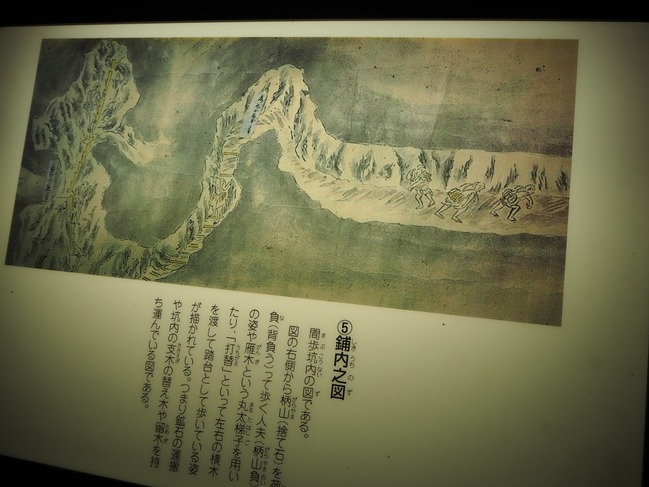 ⑤鋪内之図
間歩坑内の図である。
図の右側から柄山(捨て石)を荷
負(背負う)って歩く人夫(柄山負
の姿や雁木という丸太梯子を用い
たり、「打替」といって左右の横木
を渡して踏台として歩いている姿
が描かれている。つまり鉱石の運搬
や坑内の支木の替え木や留木を持
ち運んでいる図である。